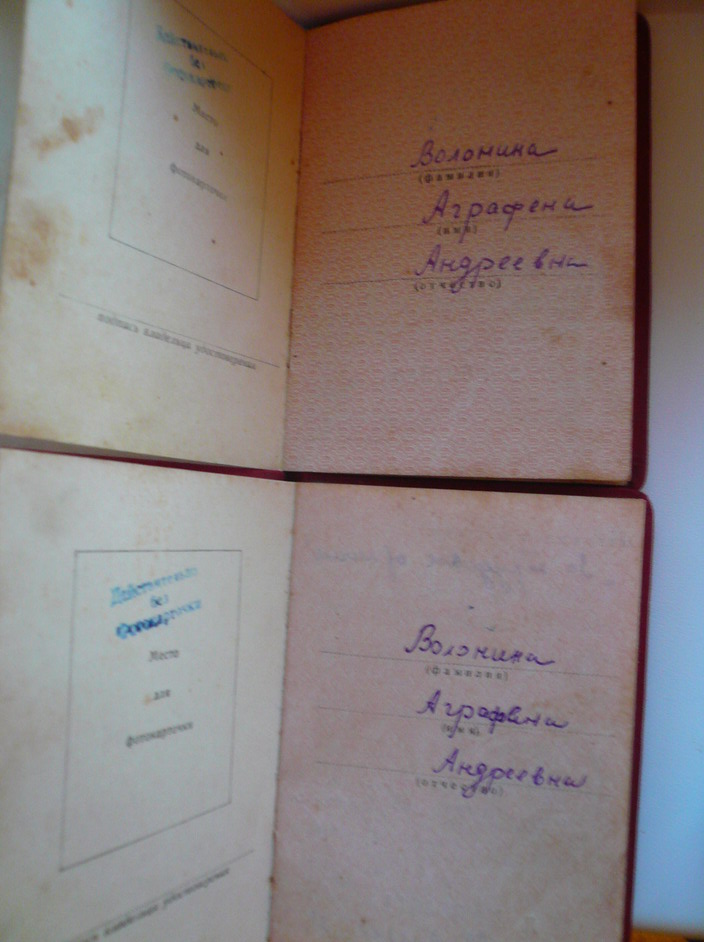 Действительно
без
фотокарточки
Место
для
фотокарточки
подпись владельца удостоверения
Волонина
(фамилия)
Аграфена
(имя)
Андреевна
(отчество)
Действительно
без
фотокарточки
Место
для
фотокарточки
владельца удостоверения
Волонина
(фамилия)
Аграфена
(имя)
Андреевна
(отчество)